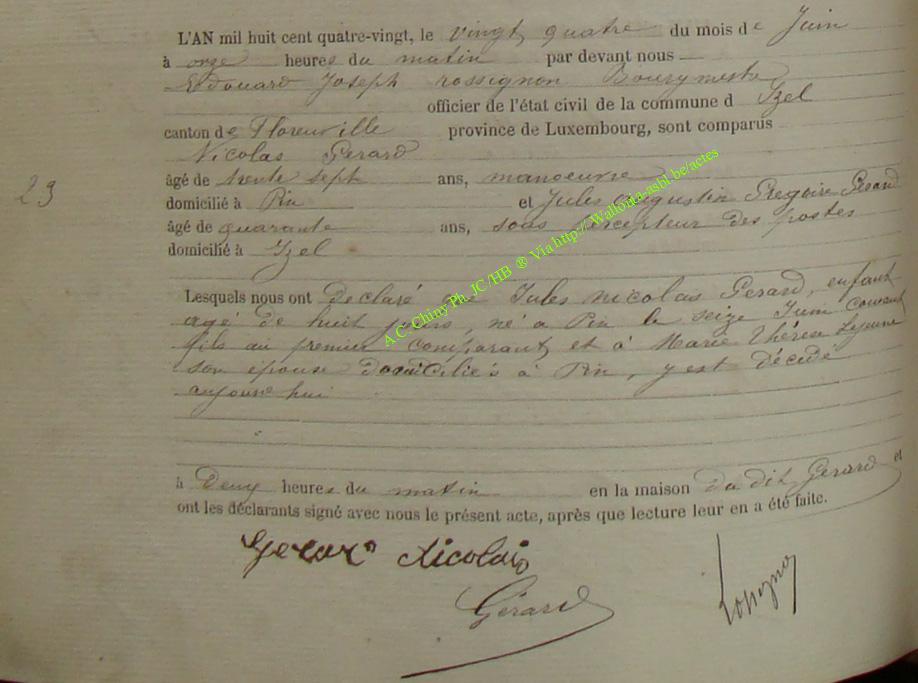 L'AN mil huit cent quatre-vingt, le vingt quatre du mois de Juin
à onze heures du matin par devant nous
Edouard Joseph rossignon Bourgmestre
officier de l'état civil de la commune d Izel
canton de Florenville province de Luxembourg, sont comparus
Nicolas Gerard
âgé de trente sept ans, manoeuvre
23
domicilié à Pin et Jules Augustin Gregoire Gerard
âgé de quarante ans, sous percepteur des postes
domicilié à Izel
A C Chiny Ph. JC /HB ® Via http://Wallonia-asbl.be/actes
Lesquels nous ont declaré que Jules nicolas Gerard, enfant
agé de huit jours, né a Pin le seize Juin courant
fils au premier comparant et à Marie Thérèse Lejeune
son épouse domiciliés à Pin, y est décédé
aujourd hui
à deux heures du matin en la maison du dit Gerard et
ont les déclarants signé avec nous le présent acte, après que lecture leur en a été faite.
Gerard Nicolas
Gérard